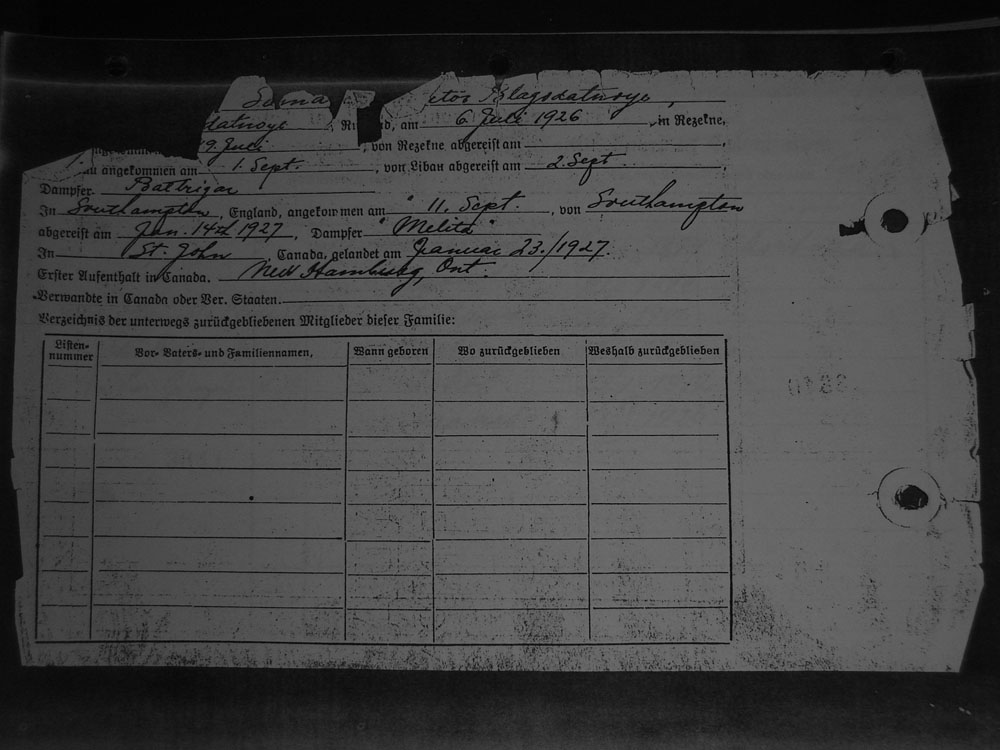 Sama Blagodatnoye,
datnoye, Rußland, am 6. Juli 1926, in Rezekne,
9. Juli, von Rezekne abgereist am
angekommen am 1. Sept., von Libau abgereist am 2. Sept,
Dampfer Baltriger
In Southampton, England, angekommen am 11. Sept., von Southampton
abgereist am Jan. 14th 1927, Dampfer "Melita"
In St. John, Canada, gelandet am Januar 23./1927.
Erster Aufenthalt in Canada. New Hamburg, Ont.
Verwandte in Canada oder Ver. Staaten.
Verzeichnis der unterwegs zurückgebliebenen Mitglieder dieser Familie:
Listen-nummer Vor- Vaters- und Familiennamen, Wann geboren Wo zurückgeblieben Weshalb zurückgeblieben